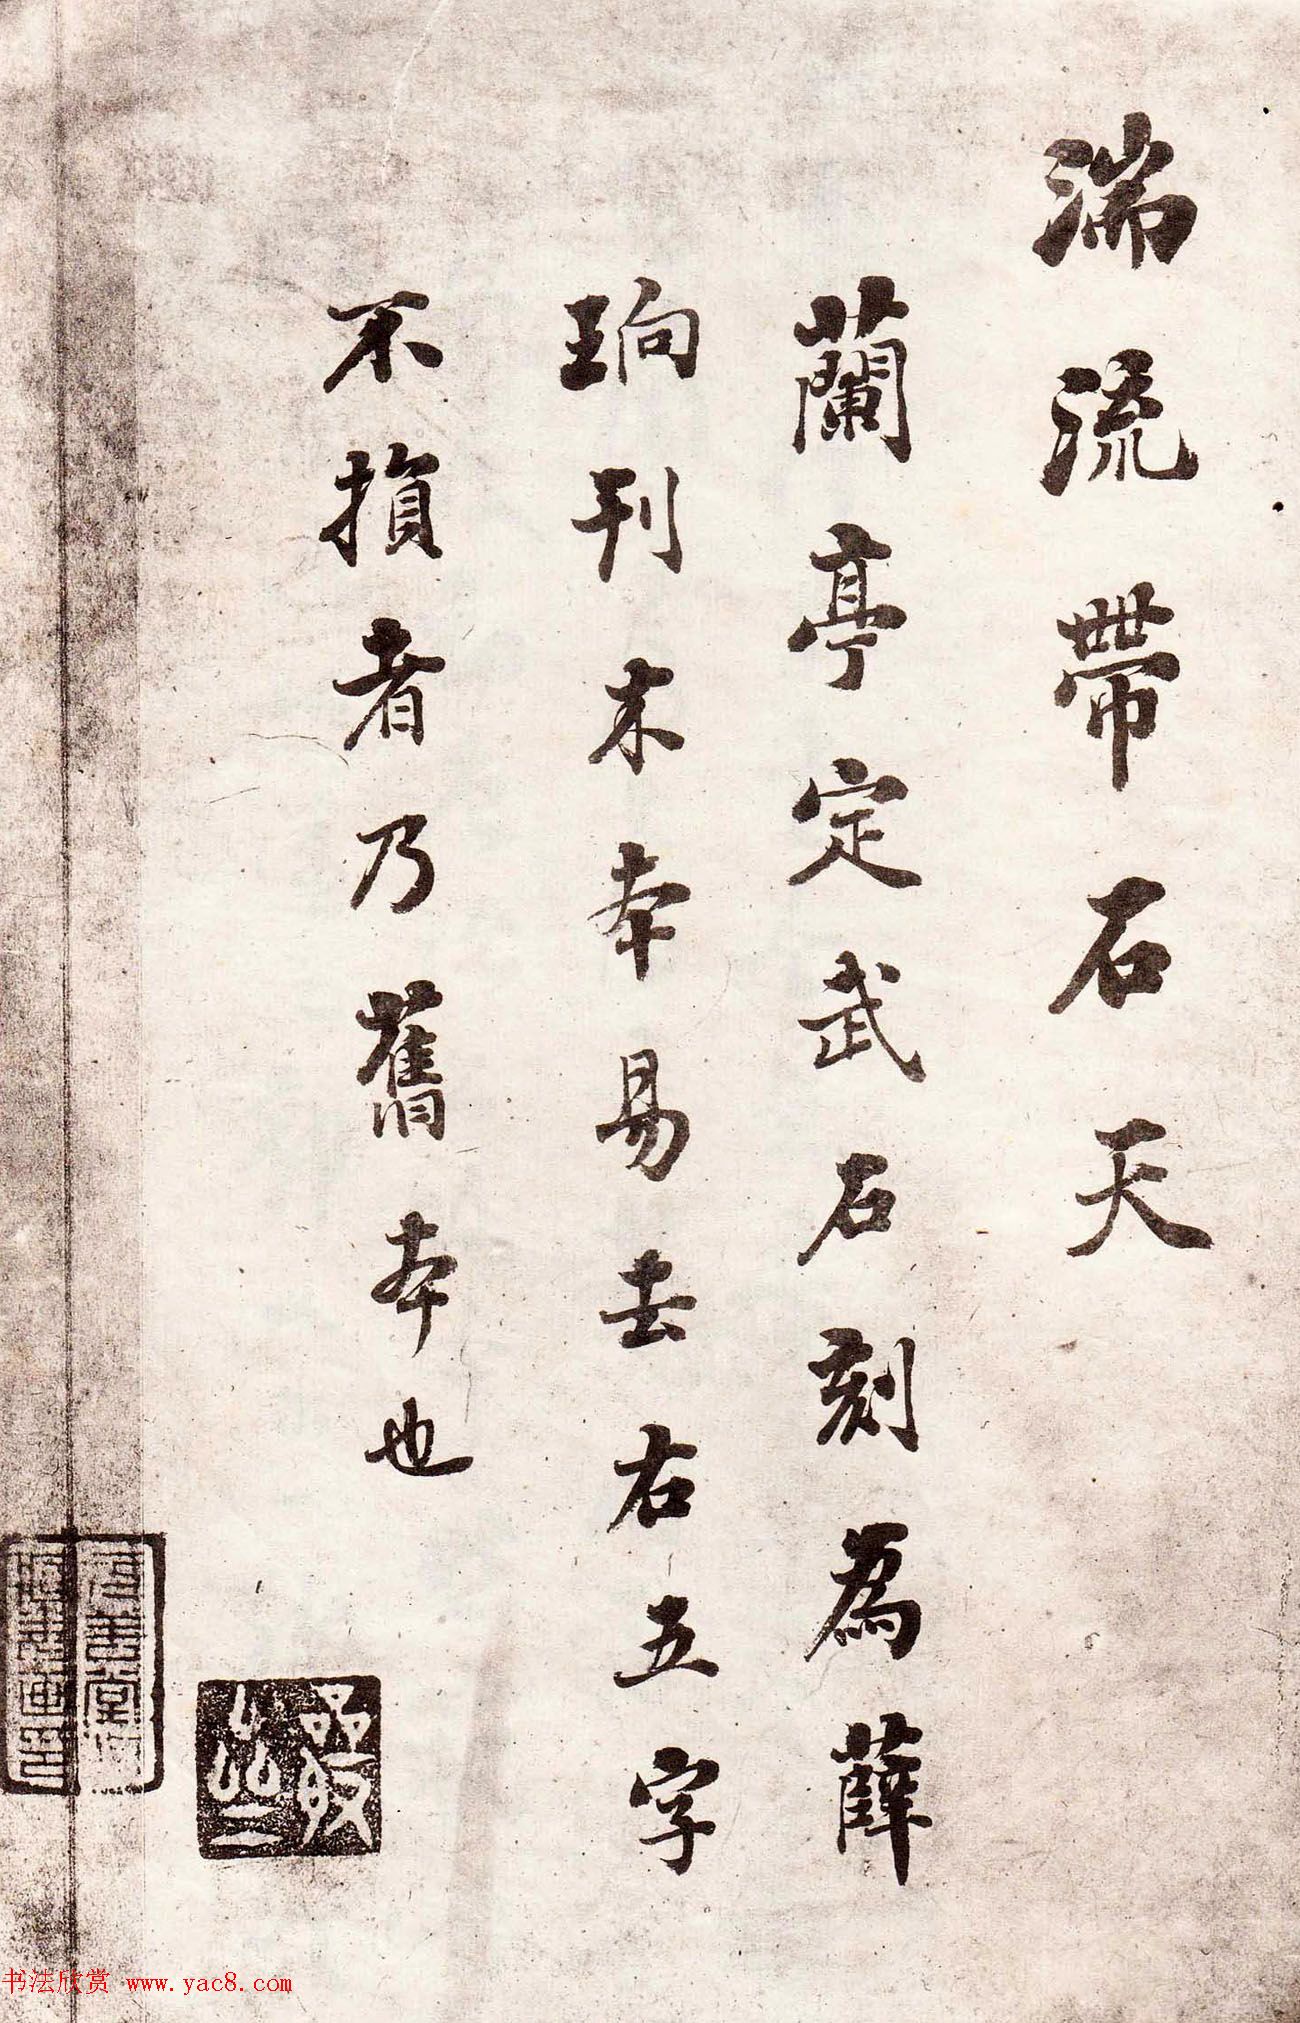 湍流帶石天
蘭亭定武石刻為薛
珦刊末本易去右五字
不損者乃舊本也
书法欣赏 www.yac8.com